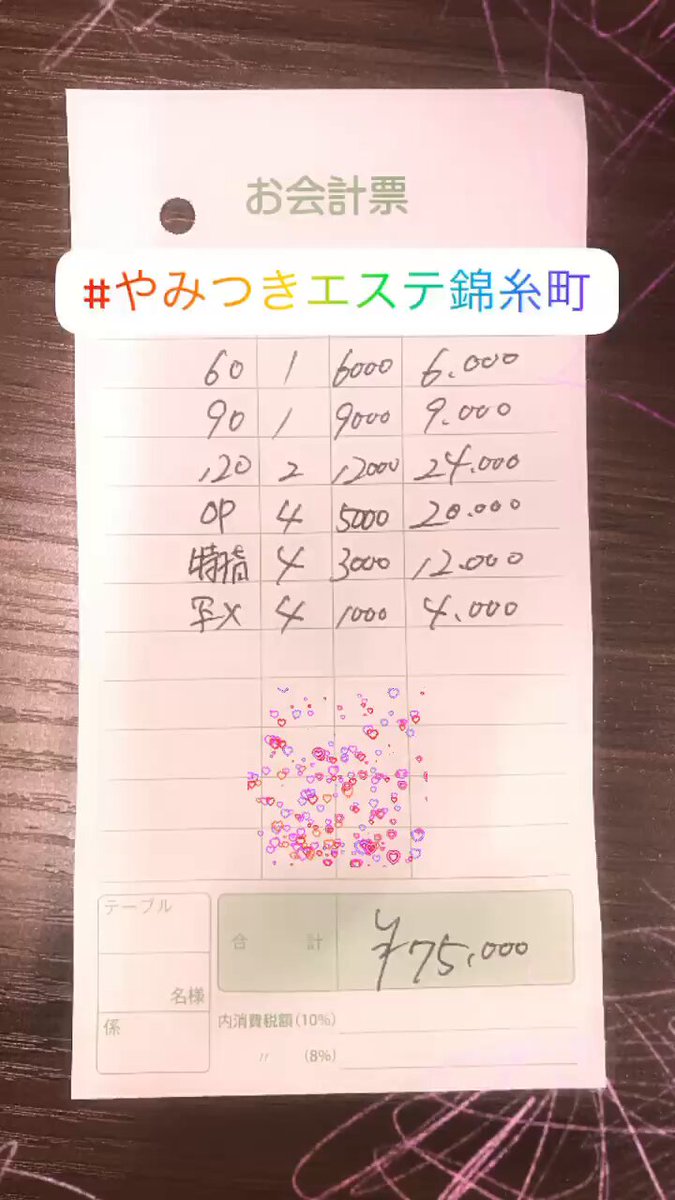 お会計票
#やみつきエステ錦糸町
60 1 6000 6.000
90 1 9000 9.000
120 2 12000 24.000
OP 4 5000 20.000
特指 4 3000 12.000
写メ 4 1000 4.000
テーブル
名様
係
合計 ¥75,000
内消費税額(10%)
〃 (8%)